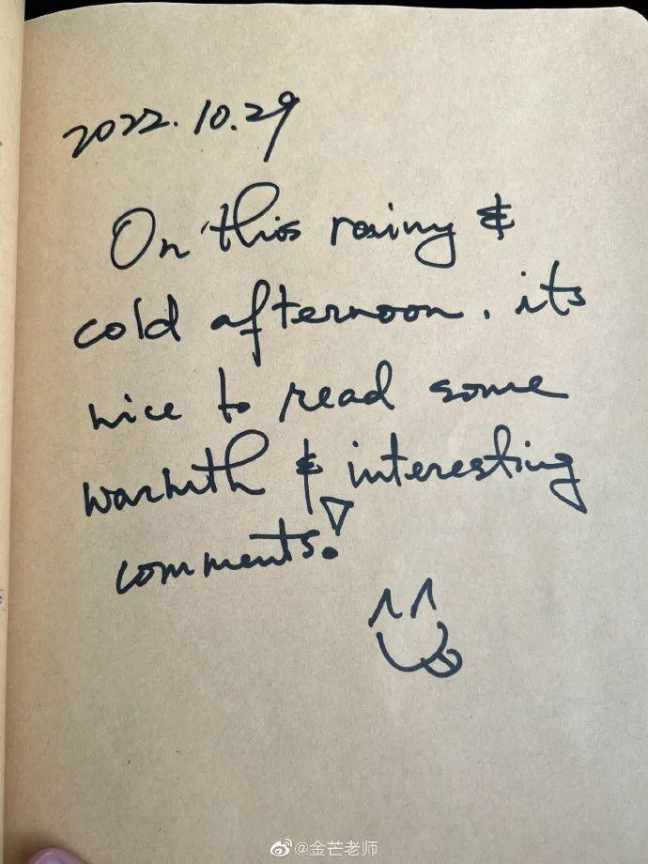 2022.10.29
On this rainy &
cold afternoon. its
nice to read some
warmth & interesting
comments!
@金芒老师